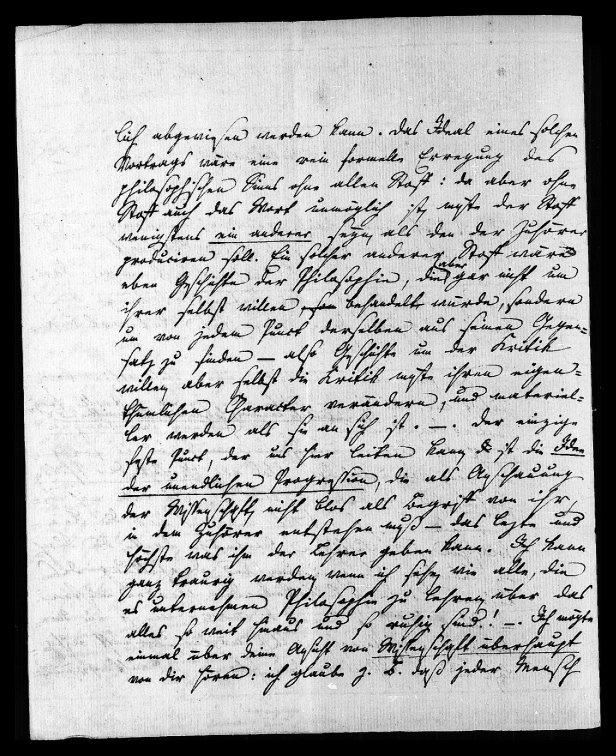 lich abgewiesen werden kann. Das Ideal eines solchen
Vortrags wäre eine rein formelle Erregung des
philosophischen Sinns ohne allen Stoff: da aber ohne
Stoff auch das Wort unmöglich ist, müste der Stoff
wenigstens ein anderer seyn, als den der Zuhörer
produciren soll. Ein solcher anderer Stoff wäre
eben Geschichte der Philosophie, die aber gar nicht um
ihrer selbst willen behandelt würde, sondern
um von jedem Punct derselben aus seinen Gegen-
satz zu finden — also Geschichte um der Kritik
willen, aber selbst die Kritik müste ihren eigen-
thümlichen Character verändern, und materiel-
ler werden als sie an sich ist. —. Der einzige
feste Punct, der uns hier leiten kann ist die Idee
der unendlichen Progression, die als Anschauung
der Wissenschaft, nicht blos als Begriff von ihr,
in dem Zuhörer entstehen muß — das lezte und
höchste was ihm der Lehrer geben kann. Ich kann
ganz traurig werden, wenn ich sehe, wie alle, die
es unternehmen Philosophie zu lehren, über das
alles so weit hinaus und so ruhig sind! —. Ich mögte
einmal über deine Ansicht von Wissenschaft überhaupt
von dir hören: ich glaube z. B. daß jeder Mensch